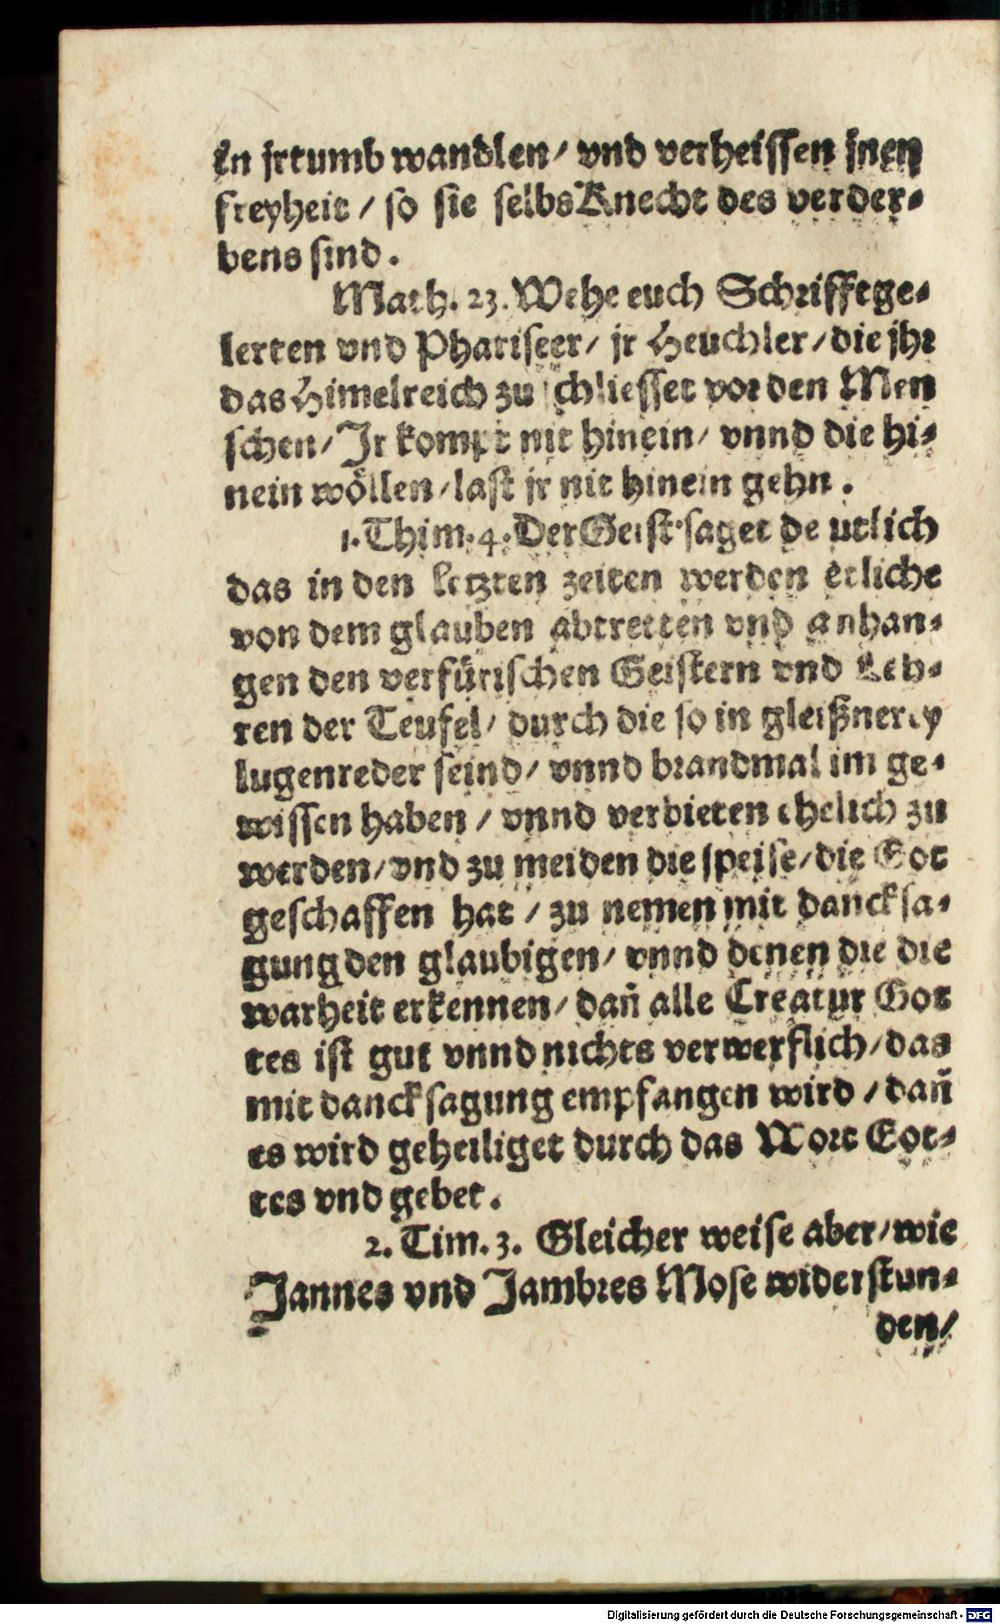 in jrtumb wandlen/ vnd verheissen jnen
freyheit / so sie selbs Knecht des verder-
bens sind.
Math. 23. Wehe euch Schrifftge-
lerten vnd Phariseer/ jr Heuchler/ die jhr
das Himelreich zu schliesset vor den Men
schen/ Jr kompt nit hinein/ vnnd die hi-
nein wöllen/ last jr nit hinein gehn.
1. Thim. 4. Der Geist saget deutlich
das in den letzten zeiten werden etliche
von dem glauben abtretten vnd anhan-
gen den verfürischen Geistern vnd Leh-
ren der Teufel/ durch die so in gleißnerey
lugenreder seind/ vnnd brandmal im ge-
wissen haben / vnnd verbieten ehelich zu
werden/ vnd zu meiden die speise/ die Got
geschaffen hat / zu nemen mit dancksa-
gung den glaubigen/ vnnd denen die die
warheit erkennen/ dañ alle Creatur Got
tes ist gut vnnd nichts verwerflich/ das
mit dancksagung empfangen wird / dañ
es wird geheiliget durch das Wort Got-
tes vnd gebet.
2. Tim. 3. Gleicher weise aber/ wie
Jannes vnd Jambres Mose widerstun-
den/
Digitalisierung gefördert durch die Deutsche Forschungsgemeinschaft - DFG